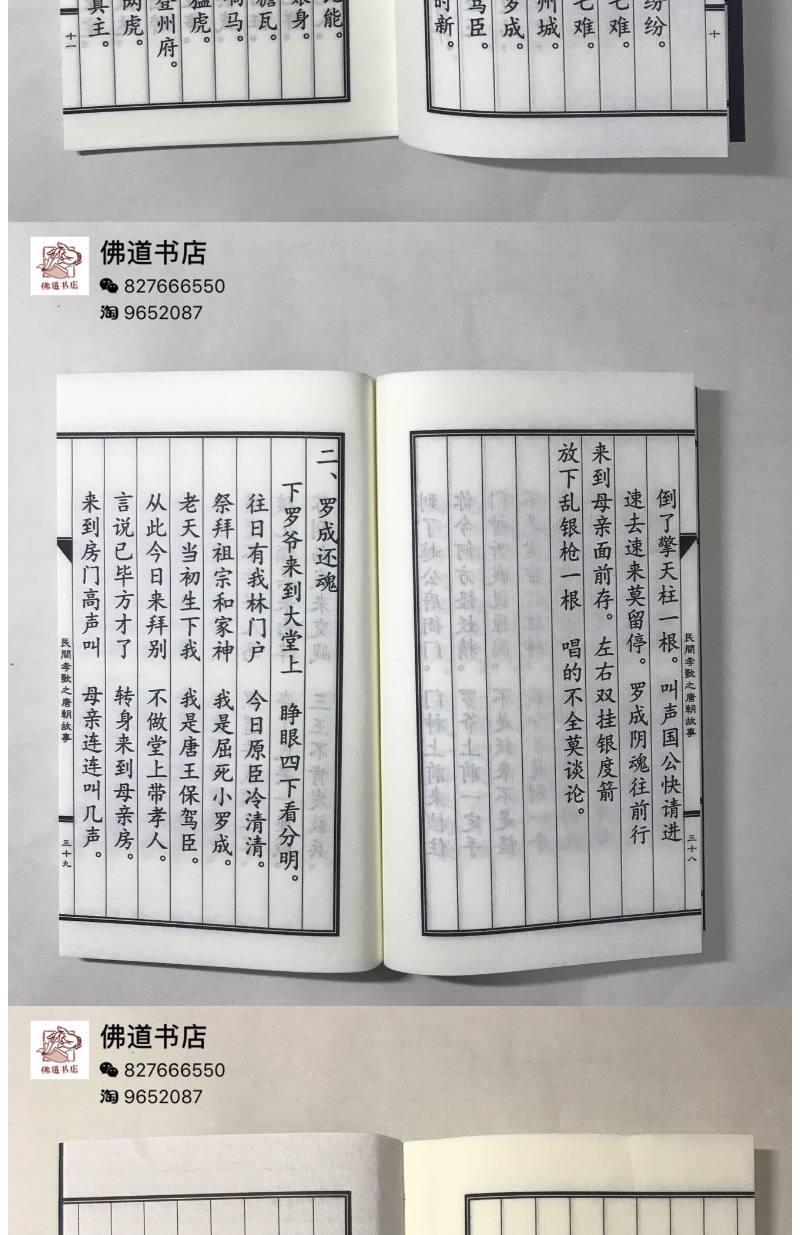 十
纷。
难。
难。
州城。
罗成。
臣。
时新。
能。
娘身。
瓦。
马。
猛虎。
登州府。
两虎。
真主。
十一
佛道书店
佛道书店
827666550
淘 9652087
民間孝歌之唐朝故事
三十八
倒了擎天柱一根。叫声国公快请进
速去速来莫留停。罗成阴魂往前行
来到母亲面前存。左右双挂银度箭
放下乱银枪一根 唱的不全莫谈论。
二、罗成还魂
下罗爷来到大堂上 睁眼四下看分明。
往日有我林门户 今日原臣冷清清。
祭拜祖宗和家神 我是屈死小罗成。
老天当初生下我 我是唐王保驾臣。
从此今日来拜别 不做堂上带孝人。
言说已毕方才了 转身来到母亲房。
来到房门高声叫 母亲连连叫几声。
民間孝歌之唐朝故事
三十九
佛道书店
佛道书店
827666550
淘 9652087